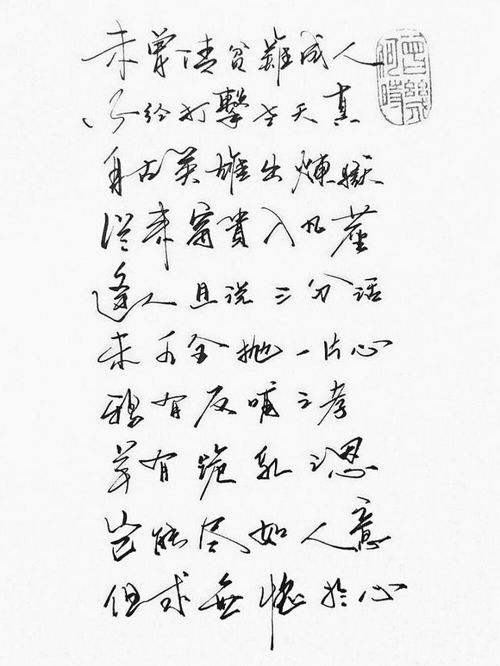 未曾清貧難成人
不经打擊老天真
自古英雄出煉獄
從来富貴入凡塵
逢人且说三分话
未可全抛一片心
鸦有反哺之孝
羊有跪乳之恩
岂能尽如人意
但求無愧於心